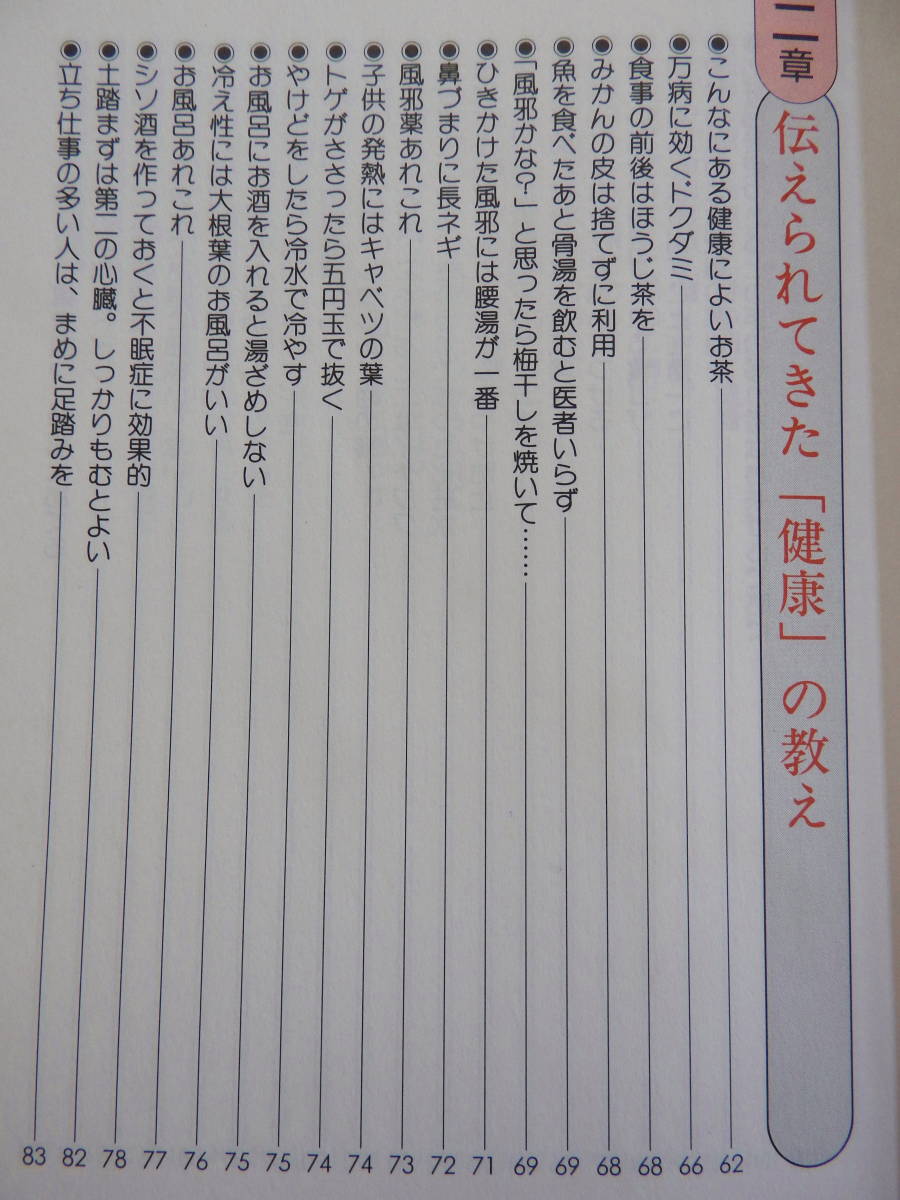 二章 伝えられてきた「健康」の教え
●こんなにある健康によいお茶 62
●万病に効くドクダミ 66
●食事の前後はほうじ茶を 68
●みかんの皮は捨てずに利用 68
●魚を食べたあと骨湯を飲むと医者いらず 69
●「風邪かな?」と思ったら梅干しを焼いて…… 69
●ひきかけた風邪には腰湯が一番 71
●鼻づまりに長ネギ 72
●風邪薬あれこれ 73
●子供の発熱にはキャベツの葉 74
●トゲがささったら五円玉で抜く 74
●やけどをしたら冷水で冷やす 75
●お風呂にお酒を入れると湯ざめしない 75
●冷え性には大根葉のお風呂がいい 76
●お風呂あれこれ 77
●シソ酒を作っておくと不眠症に効果的 78
●土踏まずは第二の心臓。しっかりもむとよい 82
●立ち仕事の多い人は、まめに足踏みを 83